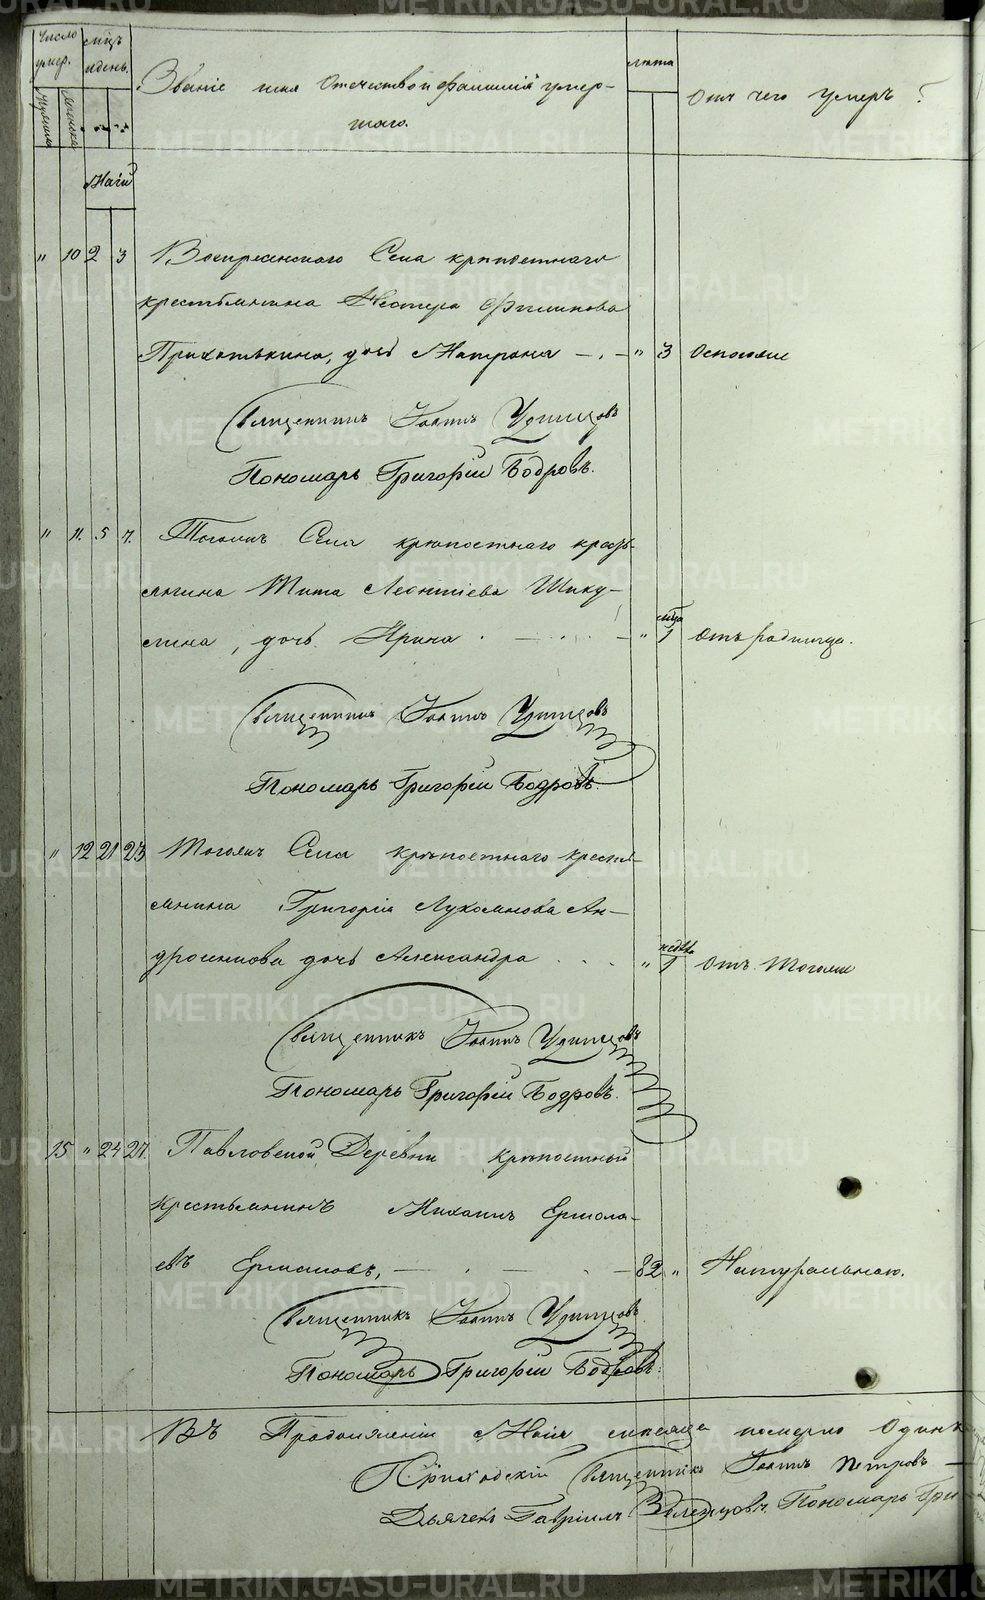 Число умер.
мцъ и день.
Званіе имя Отечество и Фамилія умер-
шаго.
лѣта
Отъ чего умеръ?
Мужеска
Женска
Маій
" 10 2 3 Воскресенскаго Села крѣпостнаго
крестьянина Нестера Филипова
дочь Матрона " 3 Оспою
Священникъ Іоаннъ Удинцовъ
Пономарь Григорій Бодровъ.
" 11 5 7 Тогожъ Села крѣпостнаго кресть-
янина Тита Леонтіева Шику-
лина, дочь Ирина " мсца 1 Отъ родимца.
Священникъ Іоаннъ Удинцовъ
Пономарь Григорій Бодровъ.
" 12 21 23 Тогожъ Села крѣпостнаго крестья-
янина Григорія Лукоянова Ан-
дроникова дочь Александра " недѣль 1 Отъ тогоже
Священникъ Іоаннъ Удинцовъ
Пономарь Григорій Бодровъ.
15 " 24 27 Павловской Деревни крѣпостный
крестьянинъ Михаилъ Ермола-
евъ 82 " Натурально.
Священникъ Іоаннъ Удинцовъ
Пономарь Григорій Бодровъ.
Въ Продолженіи Маія месяца померло Одинъ
Приходскій Священникъ Іоаннъ Петровъ
Дьячекъ Гавріилъ Пономарь Гри
METRIKI.GASO-URAL.RU